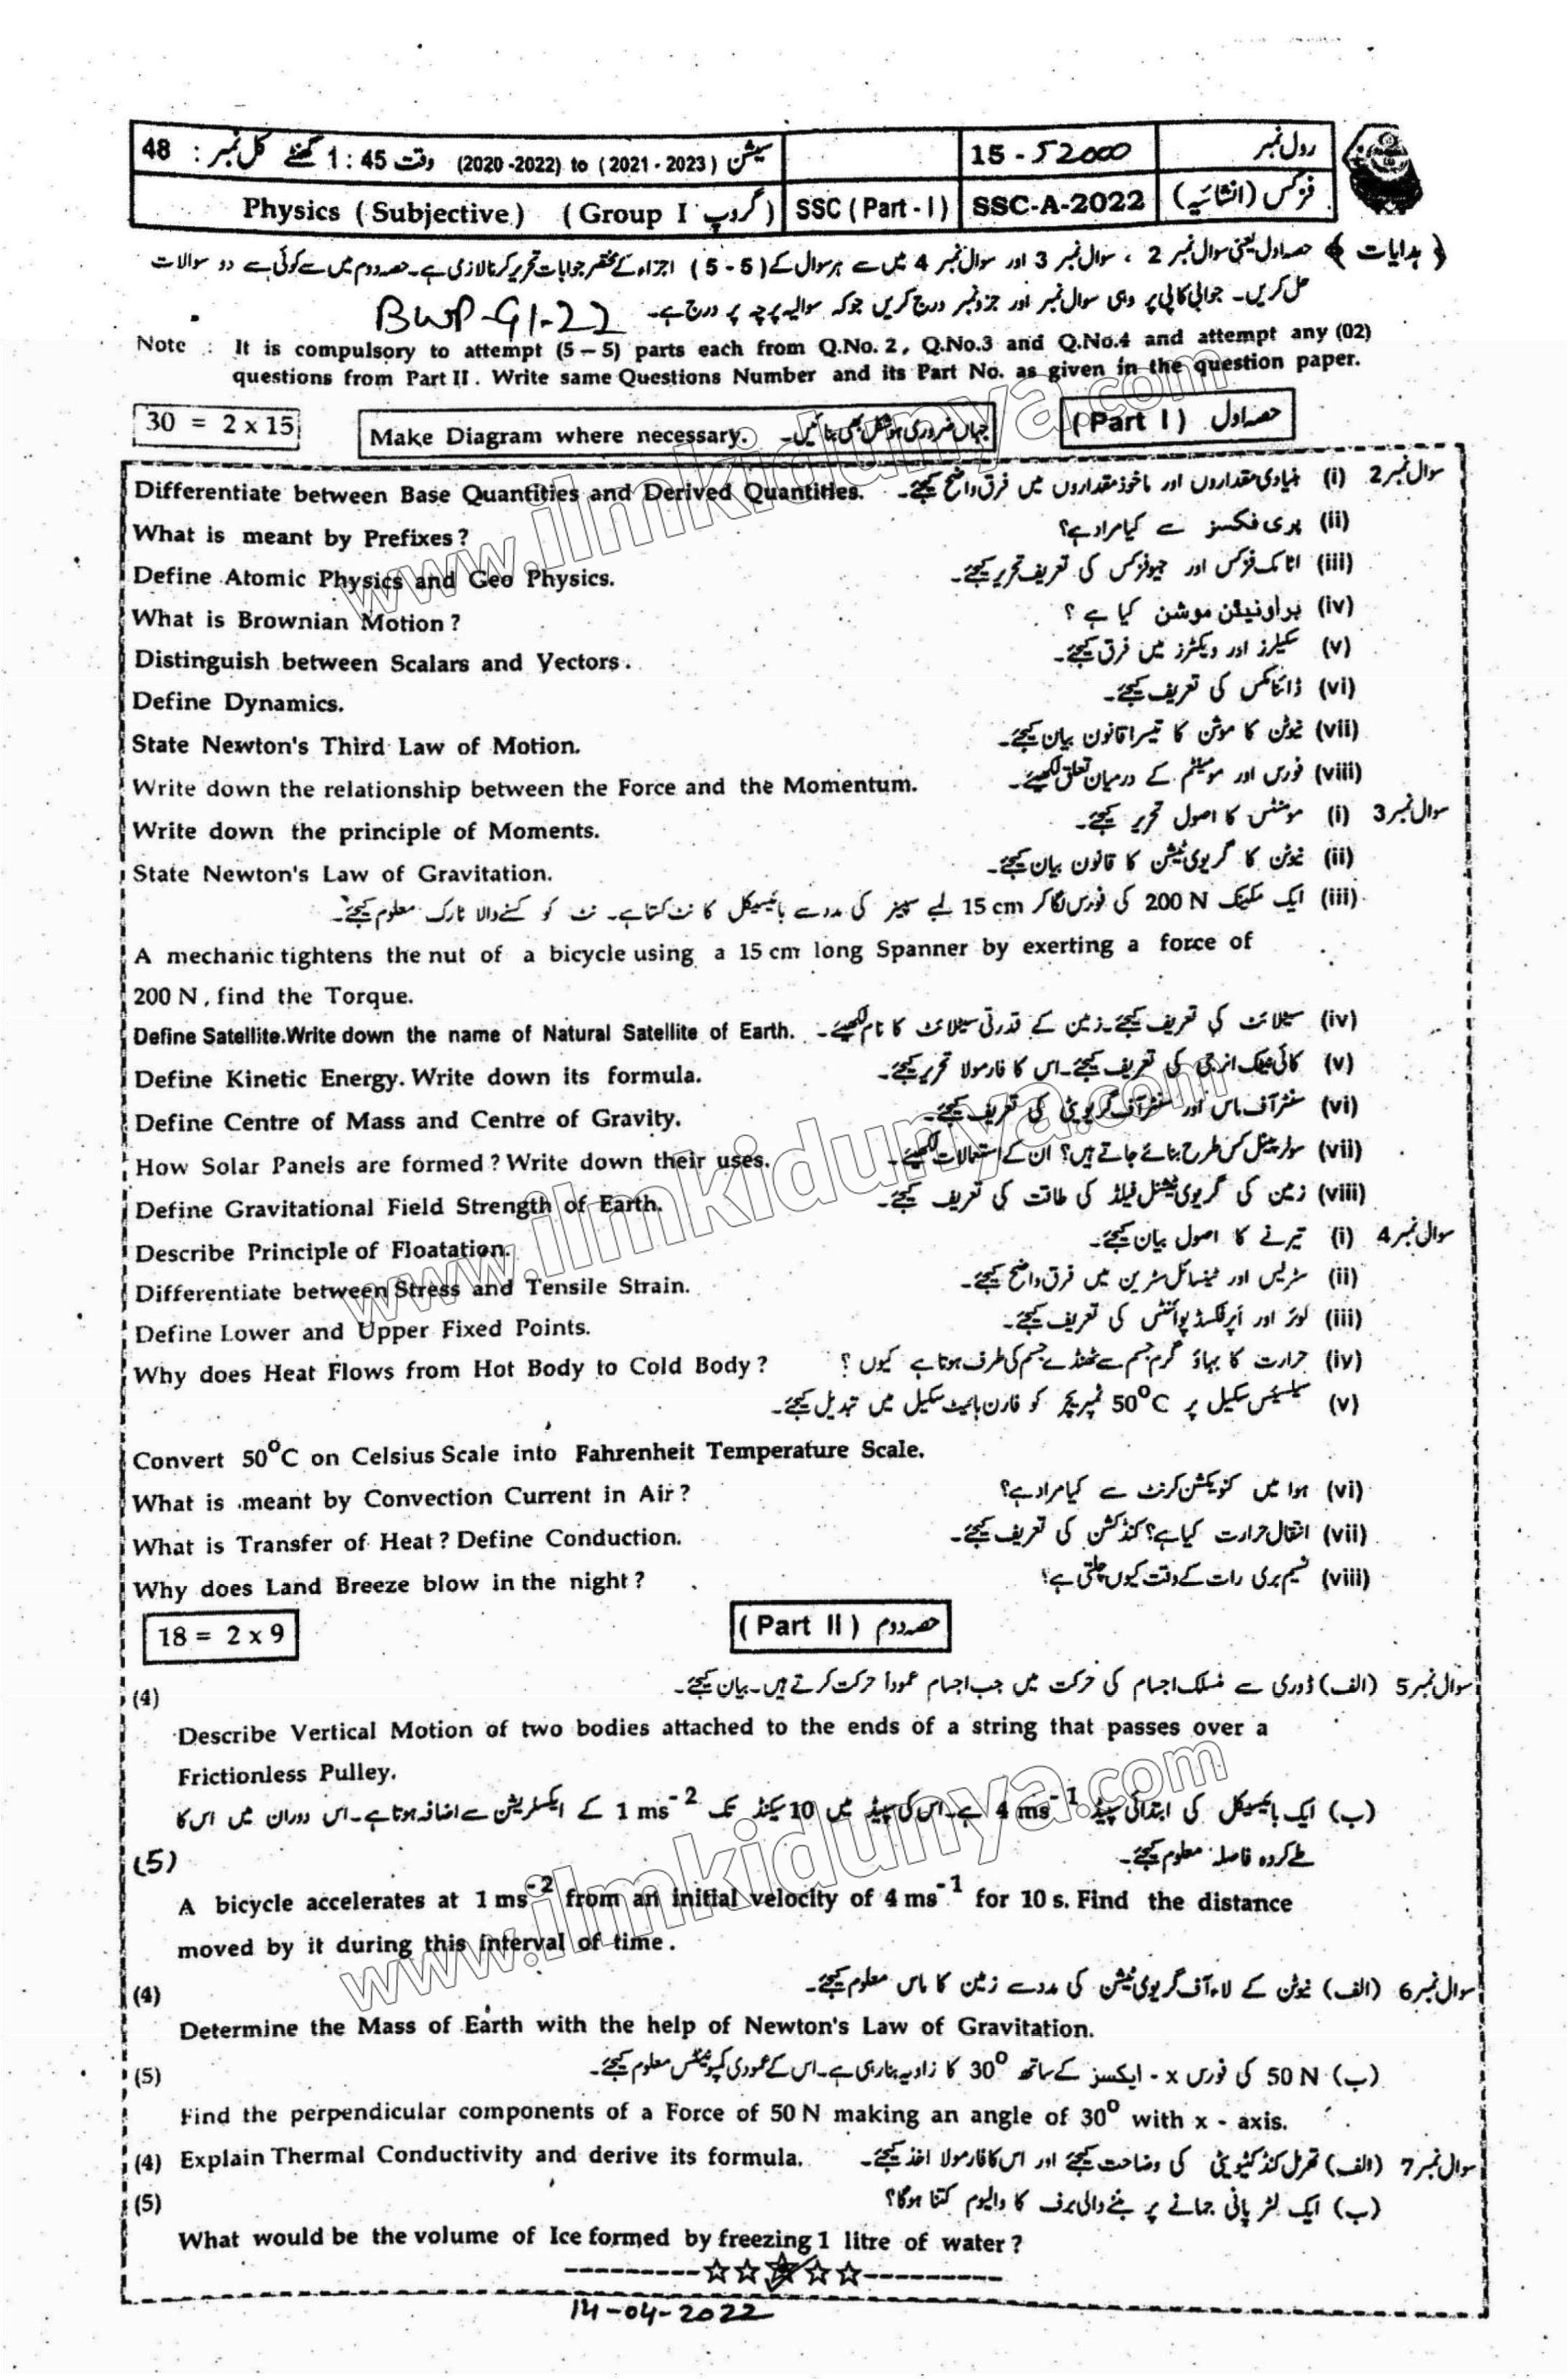 رول نمبر 15 - 52000 سیشن (2020 -2022) to (2021 - 2023) وقت 1 : 45 گھنٹے کل نمبر : 48
فزکس (انشائیہ) SSC-A-2022 SSC (Part - I) Physics (Subjective) (Group I گروپ)
﴿ ہدایات ﴾ حصہ اول یعنی سوال نمبر 2 ، سوال نمبر 3 اور سوال نمبر 4 میں سے ہر سوال کے (5 - 5) اجزاء کے مختصر جوابات تحریر کرنا لازمی ہے۔ حصہ دوم میں سے کوئی سے دو سوالات
حل کریں۔ جوابی کاپی پر وہی سوال نمبر اور جزو نمبر درج کریں جو کہ سوالیہ پرچہ پر درج ہے۔ BWP-G1-22
Note : It is compulsory to attempt (5 – 5) parts each from Q.No. 2, Q.No.3 and Q.No.4 and attempt any (02)
questions from Part II. Write same Questions Number and its Part No. as given in the question paper.
30 = 2 x 15 Make Diagram where necessary. جہاں ضروری ہو شکل بھی بنائیں۔ (Part I) حصہ اول
سوال نمبر 2 (i) بنیادی مقداروں اور ماخوذ مقداروں میں فرق واضح کیجئے۔ Differentiate between Base Quantities and Derived Quantities.
(ii) پری فکسز سے کیا مراد ہے؟ What is meant by Prefixes?
(iii) اٹامک فزکس اور جیوفزکس کی تعریف تحریر کیجئے۔ Define Atomic Physics and Geo Physics.
(iv) براؤنیئن موشن کیا ہے ؟ What is Brownian Motion?
(v) سکیلرز اور ویکٹرز میں فرق کیجئے۔ Distinguish between Scalars and Vectors.
(vi) ڈائنامکس کی تعریف کیجئے۔ Define Dynamics.
(vii) نیوٹن کا موشن کا تیسرا قانون بیان کیجئے۔ State Newton's Third Law of Motion.
(viii) فورس اور مومینٹم کے درمیان تعلق لکھیئے۔ Write down the relationship between the Force and the Momentum.
سوال نمبر 3 (i) مومنٹس کا اصول تحریر کیجئے۔ Write down the principle of Moments.
(ii) نیوٹن کا گریویٹیشن کا قانون بیان کیجئے۔ State Newton's Law of Gravitation.
(iii) ایک مکینک 200 N کی فورس لگا کر 15 cm لمبے سپینر کی مدد سے بائیسیکل کا نٹ کستا ہے۔ نٹ کو کسنے والا ٹارک معلوم کیجئے۔
A mechanic tightens the nut of a bicycle using a 15 cm long Spanner by exerting a force of
200 N, find the Torque.
(iv) سیٹلائٹ کی تعریف کیجئے۔ زمین کے قدرتی سیٹلائٹ کا نام لکھیئے۔ Define Satellite.Write down the name of Natural Satellite of Earth.
(v) کائی نیٹک انرجی کی تعریف کیجئے۔ اس کا فارمولا تحریر کیجئے۔ Define Kinetic Energy. Write down its formula.
(vi) سنٹر آف ماس اور سنٹر آف گریویٹی کی تعریف کیجئے۔ Define Centre of Mass and Centre of Gravity.
(vii) سولر پینل کس طرح بنائے جاتے ہیں؟ ان کے استعمالات لکھیئے۔ How Solar Panels are formed? Write down their uses.
(viii) زمین کی گریویٹیشنل فیلڈ کی طاقت کی تعریف کیجئے۔ Define Gravitational Field Strength of Earth.
سوال نمبر 4 (i) تیرنے کا اصول بیان کیجئے۔ Describe Principle of Floatation.
(ii) سٹریس اور ٹینسائل سٹرین میں فرق واضح کیجئے۔ Differentiate between Stress and Tensile Strain.
(iii) لوئر اور اَپر فکسڈ پوائنٹس کی تعریف کیجئے۔ Define Lower and Upper Fixed Points.
(iv) حرارت کا بہاؤ گرم جسم سے ٹھنڈے جسم کی طرف ہوتا ہے کیوں ؟ Why does Heat Flows from Hot Body to Cold Body?
(v) سیلسیئس سکیل پر 50°C ٹمپریچر کو فارن ہائیٹ سکیل میں تبدیل کیجئے۔
Convert 50°C on Celsius Scale into Fahrenheit Temperature Scale.
(vi) ہوا میں کنویکشن کرنٹ سے کیا مراد ہے؟ What is meant by Convection Current in Air?
(vii) انتقال حرارت کیا ہے؟ کنڈکشن کی تعریف کیجئے۔ What is Transfer of Heat? Define Conduction.
(viii) نسیم بری رات کے وقت کیوں چلتی ہے؟ Why does Land Breeze blow in the night?
18 = 2 x 9 (Part II) حصہ دوم
سوال نمبر 5 (الف) ڈوری سے منسلک اجسام کی حرکت میں جب اجسام عموداً حرکت کرتے ہیں۔ بیان کیجئے۔ (4)
Describe Vertical Motion of two bodies attached to the ends of a string that passes over a
Frictionless Pulley.
(ب) ایک بائیسیکل کی ابتدائی سپیڈ 4 ms⁻¹ ہے۔ اس کی سپیڈ میں 10 سیکنڈ تک 1 ms⁻² کے ایکسلریشن سے اضافہ ہوتا ہے۔ اس دوران میں اس کا
طے کردہ فاصلہ معلوم کیجئے۔ (5)
A bicycle accelerates at 1 ms⁻² from an initial velocity of 4 ms⁻¹ for 10 s. Find the distance
moved by it during this interval of time.
سوال نمبر 6 (الف) نیوٹن کے لاء آف گریویٹیشن کی مدد سے زمین کا ماس معلوم کیجئے۔ (4)
Determine the Mass of Earth with the help of Newton's Law of Gravitation.
(ب) 50 N کی فورس x - ایکسز کے ساتھ 30° کا زاویہ بنا رہی ہے۔ اس کے عمودی کمپونینٹس معلوم کیجئے۔ (5)
Find the perpendicular components of a Force of 50 N making an angle of 30° with x - axis.
سوال نمبر 7 (الف) تھرمل کنڈکٹیویٹی کی وضاحت کیجئے اور اس کا فارمولا اخذ کیجئے۔ Explain Thermal Conductivity and derive its formula. (4)
(ب) ایک لٹر پانی جمانے پر بننے والی برف کا والیوم کتنا ہوگا؟ (5)
What would be the volume of Ice formed by freezing 1 litre of water?
---------☆☆☆☆☆---------
14-04-2022
www.ilmkidunya.com
www.ilmkidunya.com
www.ilmkidunya.com